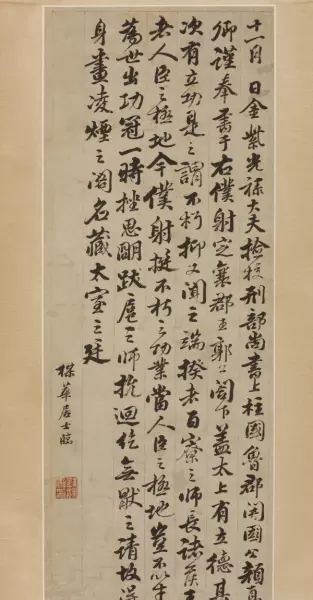 十一月 日金紫光祿大夫檢校刑部尚書上柱國魯郡開國公顏真
卿謹奉書于右僕射定襄郡王郭公閣下蓋太上有立德其
次有立功是之謂不朽抑又聞之端揆者百寮之師長諸侯王
者人臣之極地今僕射挺不朽之功業當人臣之極地豈不以才
為世出功冠一時挫思明跋扈之師抗迴紇無猒之請故得
身畫凌煙之閣名藏太室之廷
華居士臨